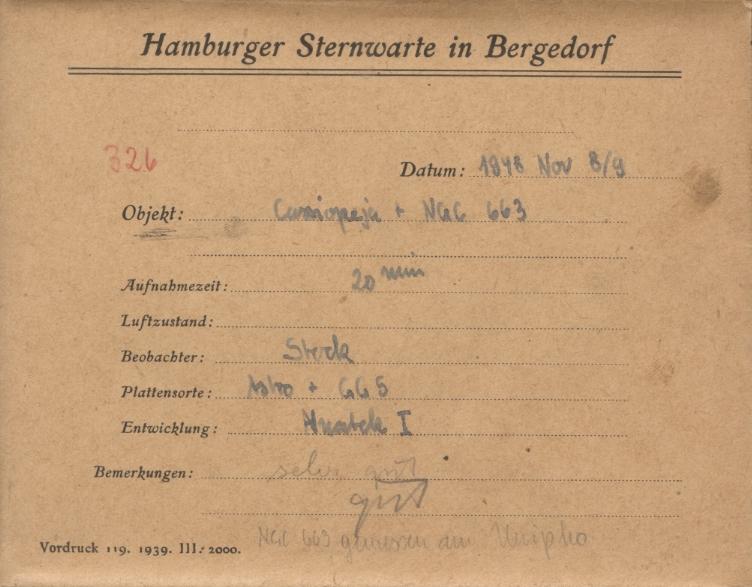 Hamburger Sternwarte in Bergedorf
326
Datum: 1948 Nov 8/9
Objekt: Cassiopeja + NGC 663
Aufnahmezeit: 20 min
Luftzustand:
Beobachter: Stock
Plattensorte: Astro + GG5
Entwicklung: I
Bemerkungen: sehr gut
gut
Vordruck 119. 1939. III. 2000.
NGC 663 gemessen am